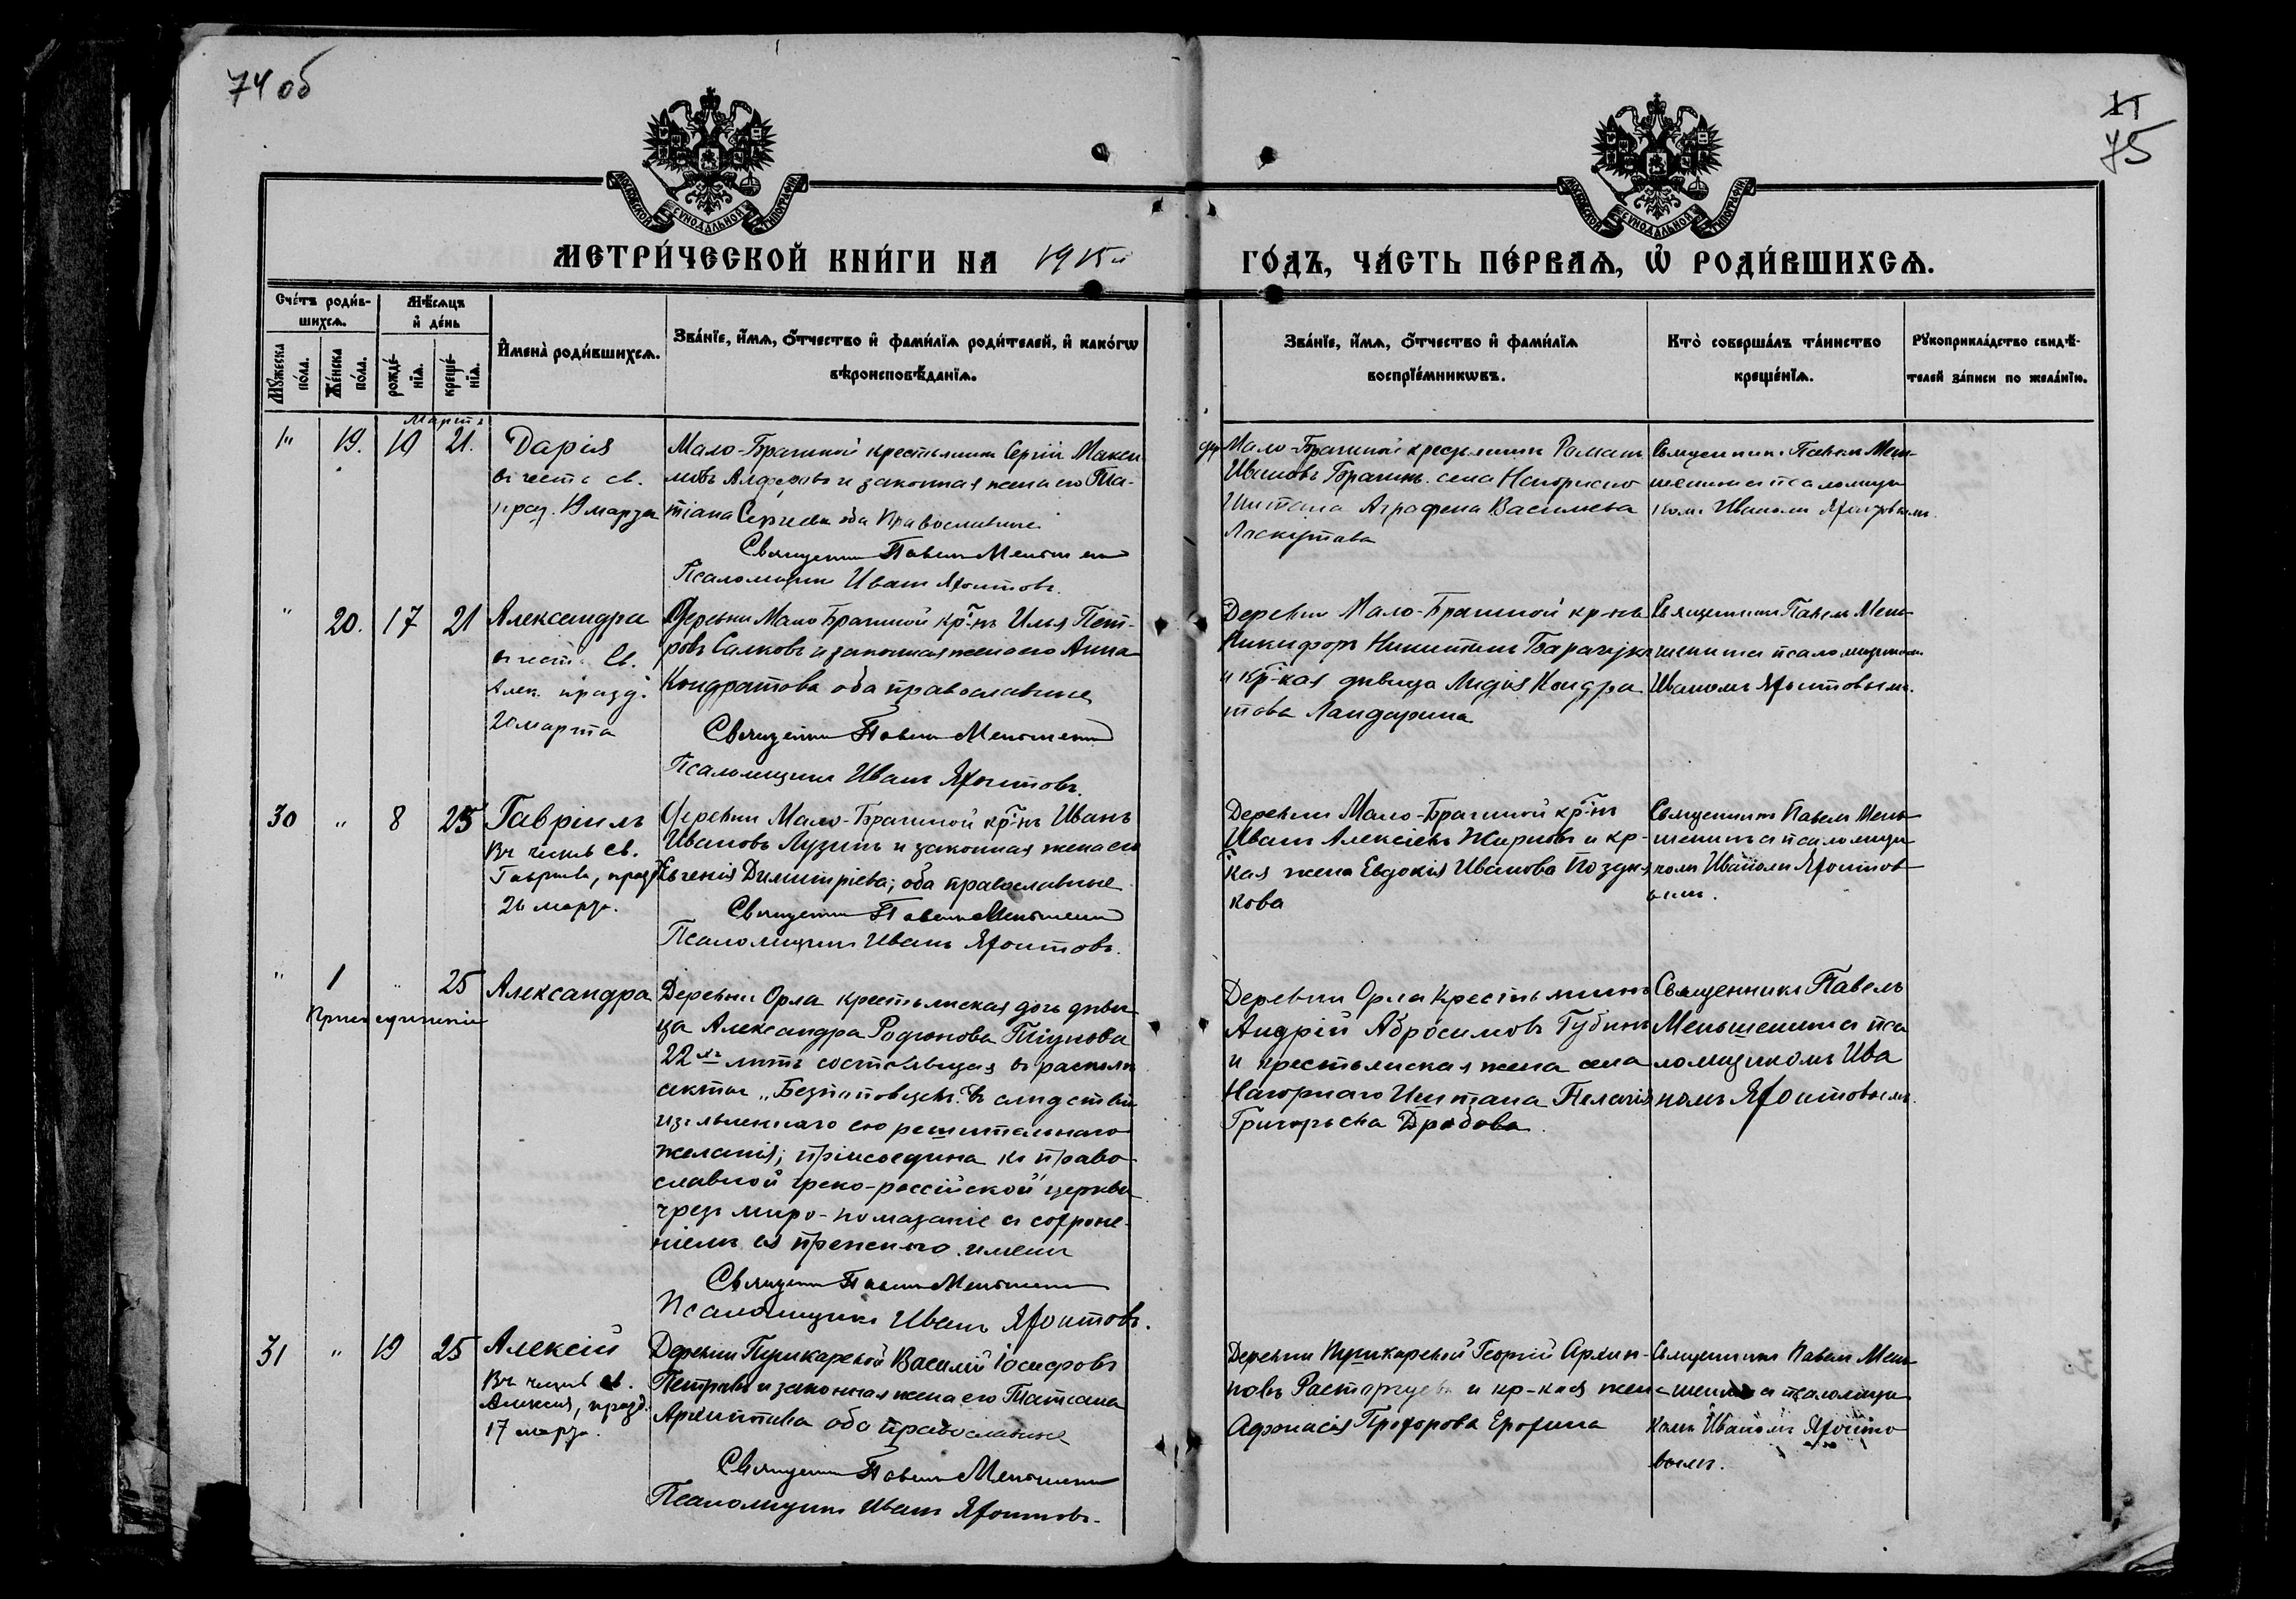 74 об
II
75
МОСКОВСКОЙ СѴНОДАЛЬНОЙ ТИПОГРАФІИ
МОСКОВСКОЙ СѴНОДАЛЬНОЙ ТИПОГРАФІИ
МЕТРИ́ЧЕСКОЙ КНИ́ГИ НА 1915й ГО́ДЪ, ЧА́СТЬ ПЕ́РВАѦ, Ѡ҆ РОДИ́ВШИХСѦ.
Сче́тъ роди́в-
шихсѧ.
Мꙋ́жеска по́ла.
Же́нска по́ла.
Мѣ́сѧцъ
и҆ де́нь
рожде́-
нїѧ.
креще́-
нїѧ.
И҆мена̀ роди́вшихсѧ.
Зва́нїе, и҆́мѧ, ѻ҆́тчество и҆ фами́лїѧ роди́телей, и҆ како́гѡ
вѣроисповѣ́данїѧ.
Зва́нїе, и҆́мѧ, ѻ҆́тчество и҆ фами́лїѧ
воспрїе́мникѡвъ.
Кто̀ соверша́лъ та́инство
креще́нїѧ.
Рꙋкоприкла́дство свидѣ́-
телей за́писи по жела́нїю.
Марта
19. 19 21. Дарія
въ честь св.
празд. 19 марта
Мало-Брачиной крестьянин Сергій Макси
мовъ Алферовъ и законная жена его Та-
тіана Сергіева оба Православные
Священник Павел Меньшенин
Псаломщик Иван Яхонтовъ.
Мало-Брачиной крестьянин Роман
Ивановъ Брагин. села Нагорнаго
Иштана Аграфена Васильева
Лоскутова
Священник Павел Мень-
шенин с псаломщи
ком Иваном Яхонтовым.
" 20. 17 21 Александра
в честь Св.
Алек. празд.
20 марта
Деревни Мало Брагиной кр-нъ Илья Пет-
ровъ Салковъ и законная жена его Анна
Кондратова оба православные
Священник Павел Меньшенин
Псаломщик Иван Яхонтовъ.
Деревни Мало-Брагиной кр-нъ
Никифоръ Никитин
и кр-кая девица Лидія Кондра
това Ландарина
Священник Павел Мень-
шенин с псаломщиком
Иваномъ Яхонтовым.
30 " 8 25 Гавріилъ
Въ честь св.
Гавриила, празд.
26 марта.
Деревни Мало-Брагиной кр-нъ Иванъ
Ивановъ Лузин и законная жена его
Евгенія Димитріева; оба православные
Священник Павел Меньшенин
Псаломщик Иван Яхонтовъ.
Деревни Мало-Брагиной кр-нъ
Иван Алексіевъ Жирновъ и кр-
кая жена Евдокія Иванова Поздня
кова
Священник Павел Мень-
шенин с псаломщи
ком Иваном Яхонтов
ым.
" 1 " 25 Александра
Присоединеніе
Деревни Орла крестьянская дочь деви
ца Александра Родіонова Тіунова
22хъ летъ состоявшая в расколе
секты „Безпоповцевъ". В следствіе
изъявленнаго ею решительнаго
желанія; присоедина к право
славной греко-россійской церкви
чрез миро-помазаніе с сохране-
ніем ея прежняго имени
Священник Павел Меньшенин
Псаломщик Иван Яхонтовъ.
Деревни Орла Крестьянинъ
Андрій Абросимовъ Губинъ
и крестьянская жена села
Нагорнаго Иштана Пелагія
Григорьева Дробова.
Священник Павелъ
Меньшенин с пса
ломщиком Ива
номъ Яхонтовым.
31 " 19 25 Алексій
Въ честь св.
Алексія, празд.
17 марта.
Деревни Пушкаревой Василій Іосифовъ
Петровъ и законная жена его Татіана
Архиппова оба Православные
Священник Павел Меньшенин
Псаломщик Иван Яхонтовъ.
Деревни Пушкаревой Георгій Архип-
повъ Расторгуевъ и кр-кая жена
Афонасія Прохорова Ерохина
Священник Павел Мень-
шенин с псаломщи
ком Иваном Яхонто
вым.